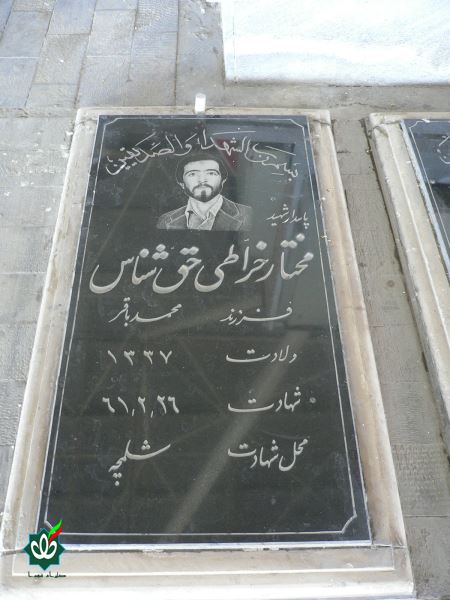 بسم رب الشهداء والصدیقین
پاسدار شهید
مختار خراطی حق شناس
فرزند محمدباقر
ولادت ۱۳۳۷
شهادت ۶۱,۲,۲۶
محل شهادت شلمچه